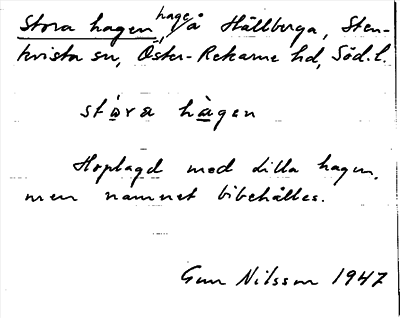 Stora hagen, hage på Hållberga, Sten-
kvista sn, Öster-Rekarne hd, Söd.l.
stóra hàgen
Hoplagd med lilla hagen,
men namnet bibehålles.
Gun Nilsson 1947